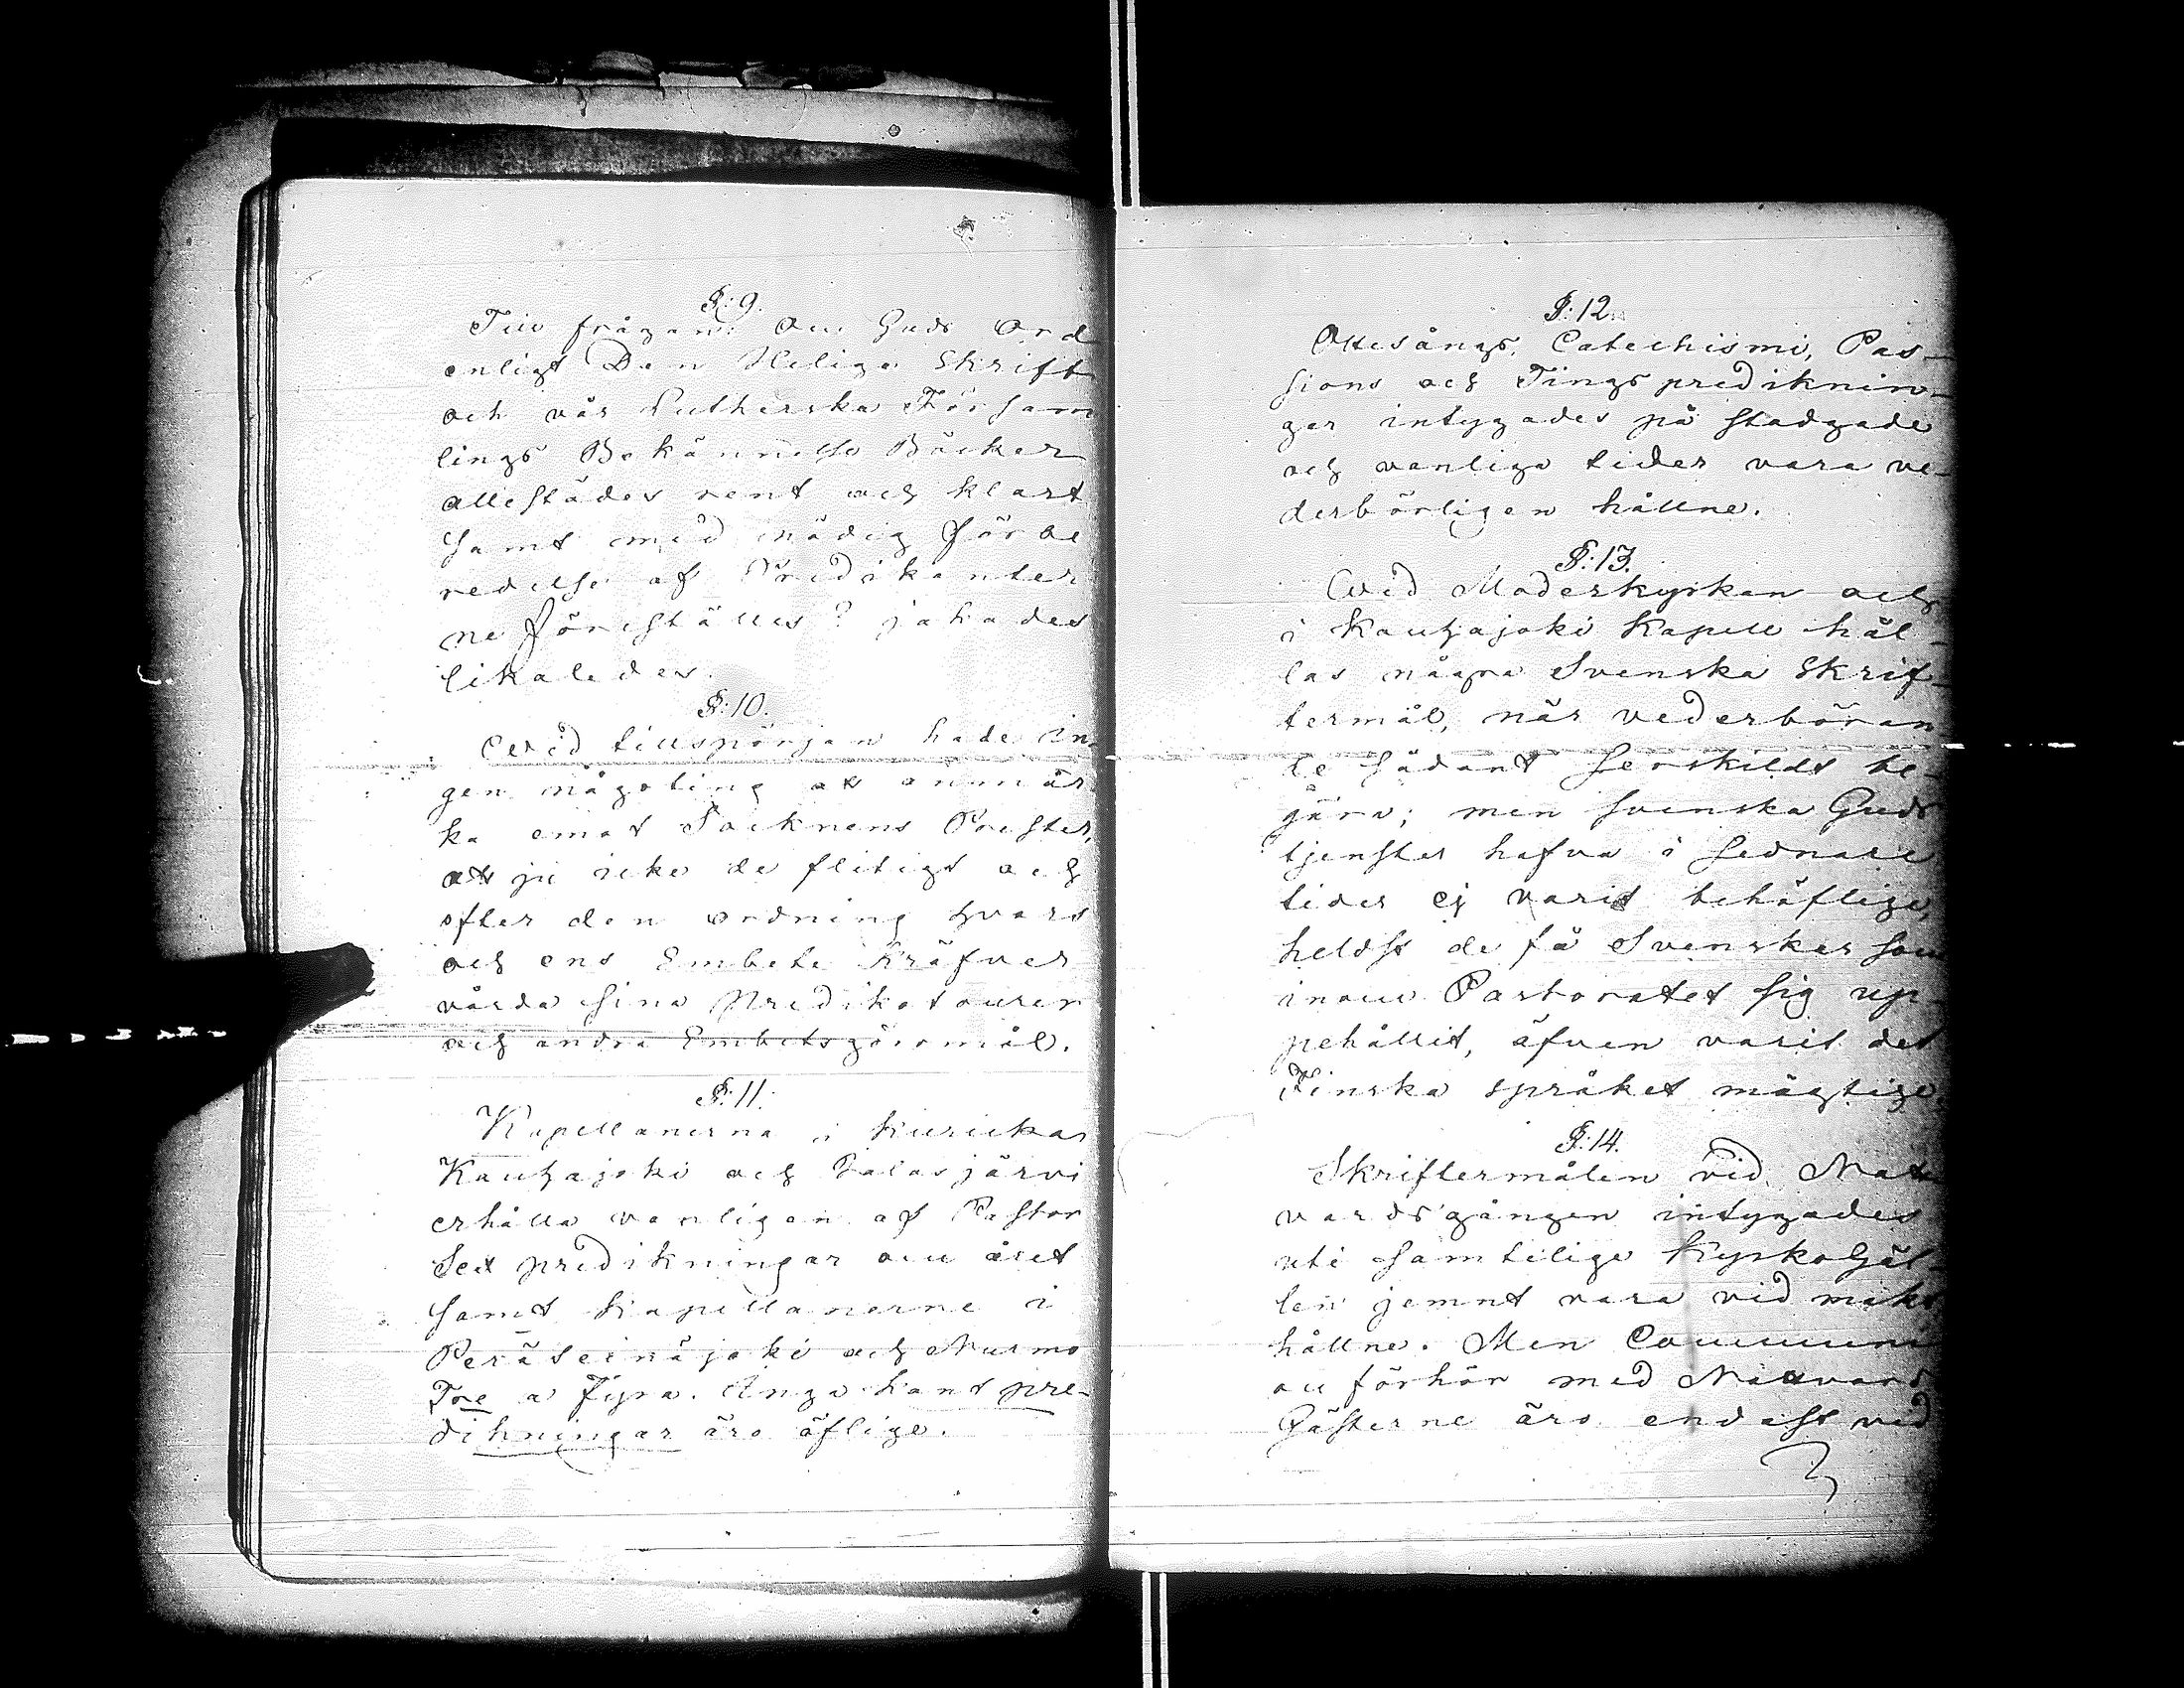 §: 9.
Till frågan: Om Guds Ord
enligt Den Heliga Skrift
och vår Lutherska Försam
lings Bekännelse Böcker
allestädes rent och klart
samt med nödig förbe
redelse af Predikanter
ne föreställes? jakades
likaledes.
§: 10.
Wid tillspörjan hade in-
gen någoting at anmär
ka emot Socknens Prester,
at ju icke de flitigt och
efter den ordning hvars
och ens Embete kräfver
vårda sina Predikoturer
och andra Embetsgöromål.
§: 11.
Kapellanerna i Kuricka
Kauhajoki och Jalasjärvi
erhålla vanligen af Pastor
Sex predikningar om året
samt Kapellanerne i
Peräseinäjoki och Nurmo
Tre a Fyra. Inga hant pre-
dikningar äro öflige.
§: 12.
Ottesångs, Catechismi, Pas-
sions och Tings prediknin-
gar intygades på stadgade
och vanliga tider vara ve-
derbörligen hållne.
§: 13.
Wid Moderkyrkan och
i Kauhajoki Kapell hål-
las några Svenska Skrif-
termål, när vederböran
de sådant serskildt be-
gära; men svenska Guds
tjenster hafva i sednare
tider ej varit behöflige,
heldst de få Svenskar som
inom Pastoratet sig up-
pehållit, äfven varit det
Finska språket mägtige.
§: 14.
Skriftermålen vid Natt
vardsgången intygades
uti samtelige Kyrkoljäl-
len jemnt vara vid makt
hållne. Men Communi
on förhör med Nattvards
Gästerne äro endast vid